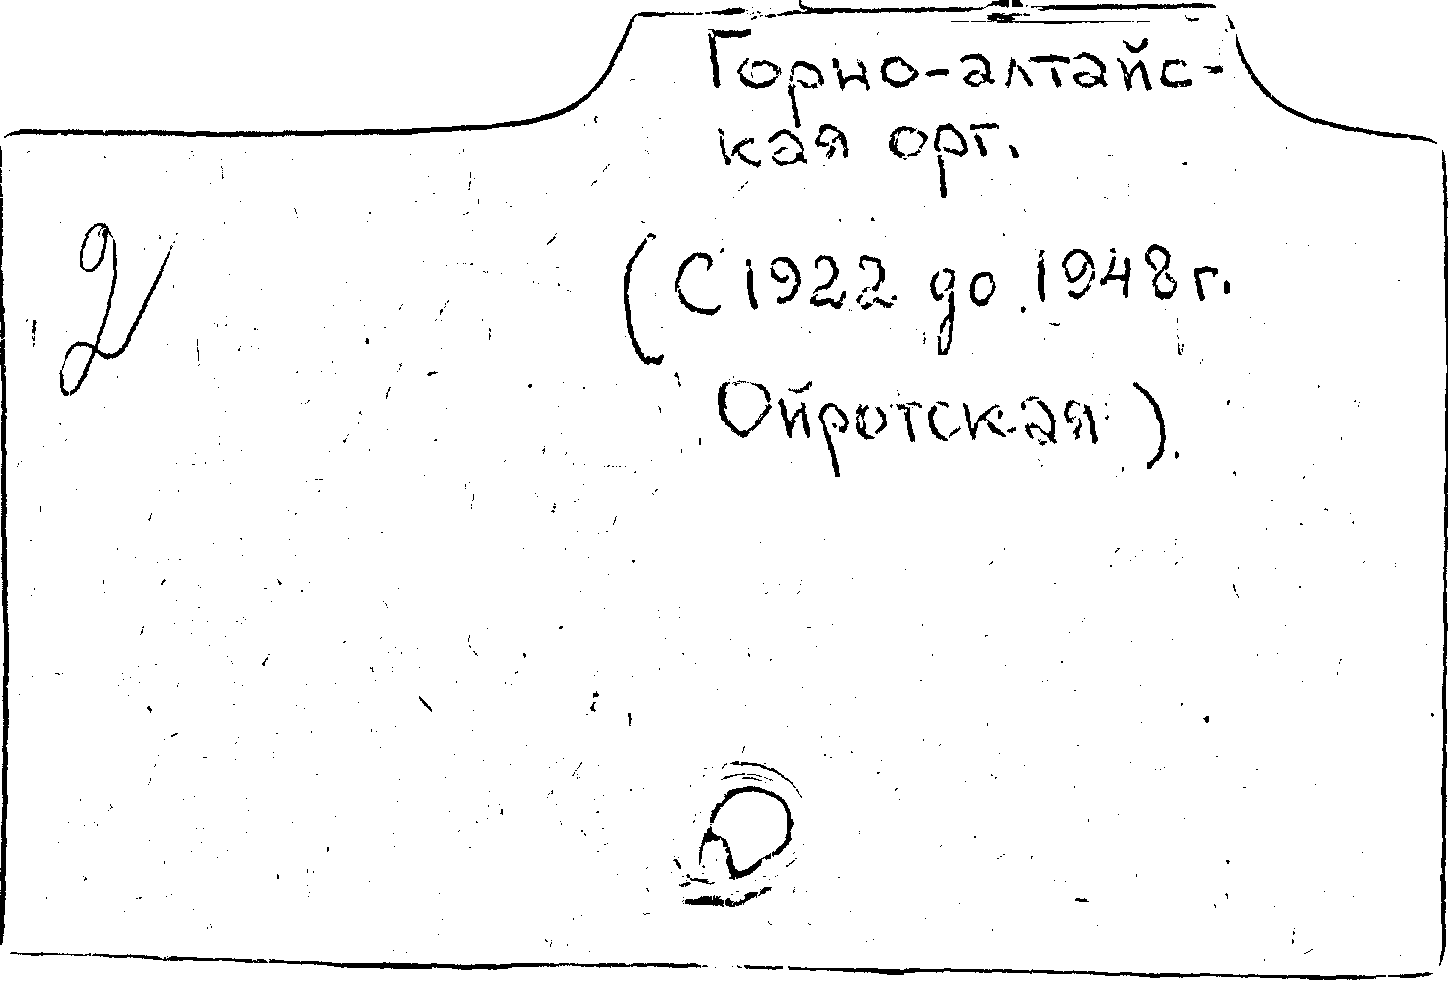 Горно-алтайс-
кая орг.
2
(С 1922 до 1948 г.
Ойротская).